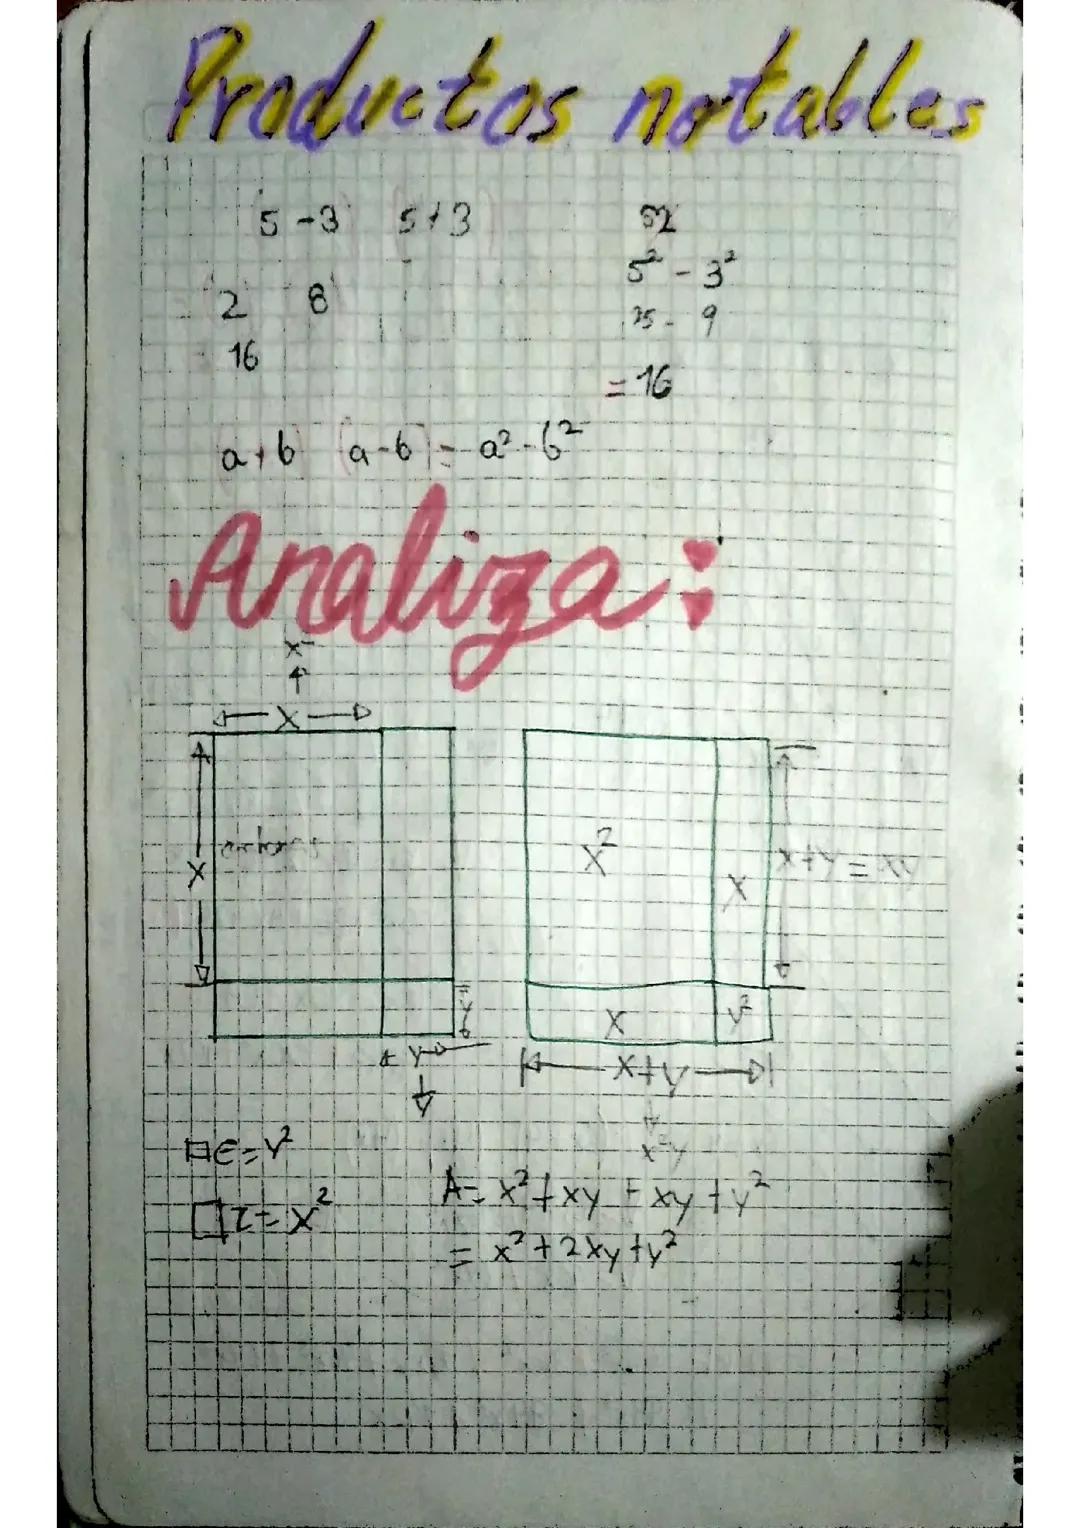 Productos notables
(5-3) (5+3)
2 8
16
5²-3²
25-9
=16
(a+b) (a-b)=a²-b²
Analiza:
x²
x
x
y
y
x²
x
x+y=xy
x
y²
x+y
x²y
□E=y²
A=x²+xy+xy+y²
=x²+2xy+y²